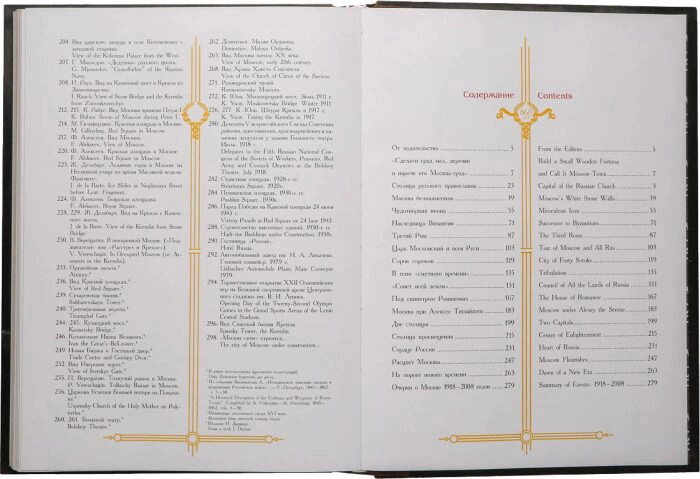 204. Вид царского дворца в селе Коломенское с
западной стороны.
View of the Kolomna Palace from the West.
207. Г. Мясоедов. «Дедушка» русского флота.
G. Myasoedov. "Grandfather" of the Russian
Navy.
208. И. Раух. Вид на Каменный мост и Кремль из
Замоскворечья.
I. Rauch. View of Stone Bridge and the Kremlin
from Zamoskvorechje.
212, 213. К. Рабус. Вид Москвы времени Петра I
K. Rabus. Scene of Moscow during Peter I.
214. М. Гильфердинг. Красная площадь в Москве
M. Gilferding. Red Square in Moscow.
217. Ф. Алексеев. Вид Москвы.
F. Alekseev. View of Moscow.
220. Ф. Алексеев. Красная площадь в Москве
F. Alekseev. Red Square in Moscow.
223. Ж. Делабарт. Ледяные горы в Москве на
Неглинной улице во время Масляной недели.
Фрагмент.
J. de la Barte. Ice Slides in Neglinnaya Street
before Lent. Fragment.
224. Ф. Алексеев. Боярская площадка.
F. Alekseev. Boyar Square.
228, 229. Ж. Делабарт. Вид на Кремль с Камен-
ного моста.
J. de la Barte. View of the Kremlin from Stone
Bridge.
230. В. Верещагин. В покоренной Москве. («Под-
жигатели» или «Расстрел в Кремле»)
V. Vereschagin. In Occupied Moscow (or Ar-
sonists in the Kremlin).
233. Оружейная палата.*
Armory.*
236. Вид Красной площади.*
View of Red Square.*
239. Сухаревская башня.*
Sukharevskaya Tower.*
240. Триумфальные ворота.*
Triumphal Gate.*
244, 245. Кузнецкий мост.*
Kuznetsky Bridge.*
246. Колокольня Ивана Великого.*
Ivan the Great's Bell-tower.*
249. Новая Биржа и Гостиный двор.*
Trade Center and Gostiny Dvor.*
252. Вид Иверских ворот.*
View of Iverskye Gate.*
255. П. Верещагин. Толкучий рынок в Москве.
P. Vereschagin. Tolkuchy Bazaar in Moscow.
256. Церковь Успения Божией матери на Покров-
ке.*
Uspensky Church of the Holy Mother on Pok-
rovka.*
260, 261. Большой театр.*
Bolshoy Theatre.*
262. Дементьев. Малая Ордынка.
Dementiev. Malaya Ordinka.
265. Вид Москвы начала XX в.
View of Moscow, early 20th century.
268. Вид Храма Христа Спасителя
View of the Church of Christ of the Saviour.
271. Румянцевский музей.
Rumiantsevsky Museum.
272. К. Юон. Москворецкий мост. Зима. 1911 г.
K. Yuon. Moskvoretsky Bridge. Winter, 1911.
276, 277. К. Юон. Штурм Кремля в 1917 г.
K. Yuon. Taking the Kremlin in 1917.
280. Делегаты V всероссийского Съезда Советских
рабочих, крестьянских, красноармейских и ка-
зачьих депутатов у здания Большого театра.
Июль. 1918 г.
Delegates to the Fifth Russian National Con-
gress of the Soviets of Workers, Peasants, Red
Army and Cossack Deputies at the Bolshoy
Theatre. July 1918.
282. Страстная площадь. 1920-е гг.
Strastnaya Square. 1920s.
284. Пушкинская площадь. 1930-е гг.
Pushkin Square, 1930s.
286. Парад Победы на Красной площади 24 июня
1945 г.
Victory Parade in Red Square on 24 June 1945.
288. Строительство высотных зданий, 1950-е гг.
High rise Buildings under Construction, 1950s.
291. Гостиница «Россия».
Hotel Russia.
292. Автомобильный завод им. И. А. Лихачева.
Главный конвейер. 1979 г.
Likhachev Automobile Plant; Main Conveyor
1979.
294. Торжественное открытие XXII Олимпийских
игр на Большой спортивной арене Централь-
ного стадиона им. В. И. Ленина.
Opening Day of the Twenty-Second Olympic
Games in the Grand Sports Arena of the Lenin
Central Stadium.
296. Вид Спасской башни Кремля.
Spassky Tower, the Kremlin.
298. «Москва-сити» строится...
The city of Moscow under construction...
Содержание Contents
От издательства 5
«Сделати град мал, деревян
и нарече его Москва-град» 7
Столица русского православия 23
Москва белокаменная 39
Чудотворная икона 55
Наследница Византии 71
Третий Рим 87
Царь Московский и всея Руси 103
Сорок сороков 119
В тени «смутного времени» 135
«Совет всей земли» 151
Под скипетром Романовых 167
Москва при Алексее Тишайшем 183
Две столицы 199
Столица просвещения 215
Сердце России 231
Расцвет Москвы 247
На пороге нового времени 263
Очерки о Москве 1918–2008 годов 279
From the Editors 5
Build a Small Wooden Fortress
and Call It Moscow-Town 7
Capital of the Russian Church 23
Moscow's White Stone Walls 39
Miraculous Icon 55
Successor to Byzantium 71
The Third Rome 87
Tsar of Moscow and All Rus 103
City of Forty Soroks 119
Tribulation 135
Council of All the Lands of Russia 151
The House of Romanov 167
Moscow under Alexey the Serene 183
Two Capitals 199
Center of Enlightenment 215
Heart of Russia 231
Moscow Flourishes 247
Dawn of a New Era 263
Summary of Events: 1918–2008 279